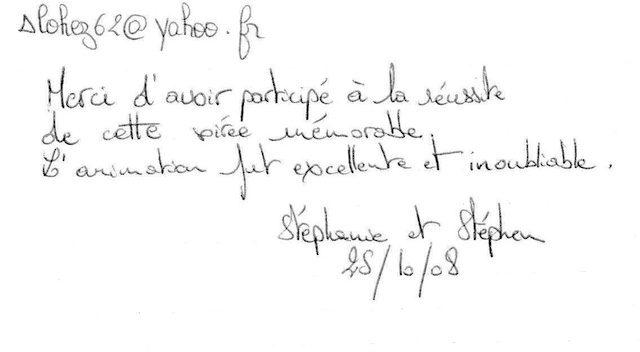 slohez62@yahoo.fr
Merci d'avoir participé à la réussite
de cette soirée mémorable.
L'animation fut excellente et inoubliable.
Stéphanie et Stéphen
25/10/08